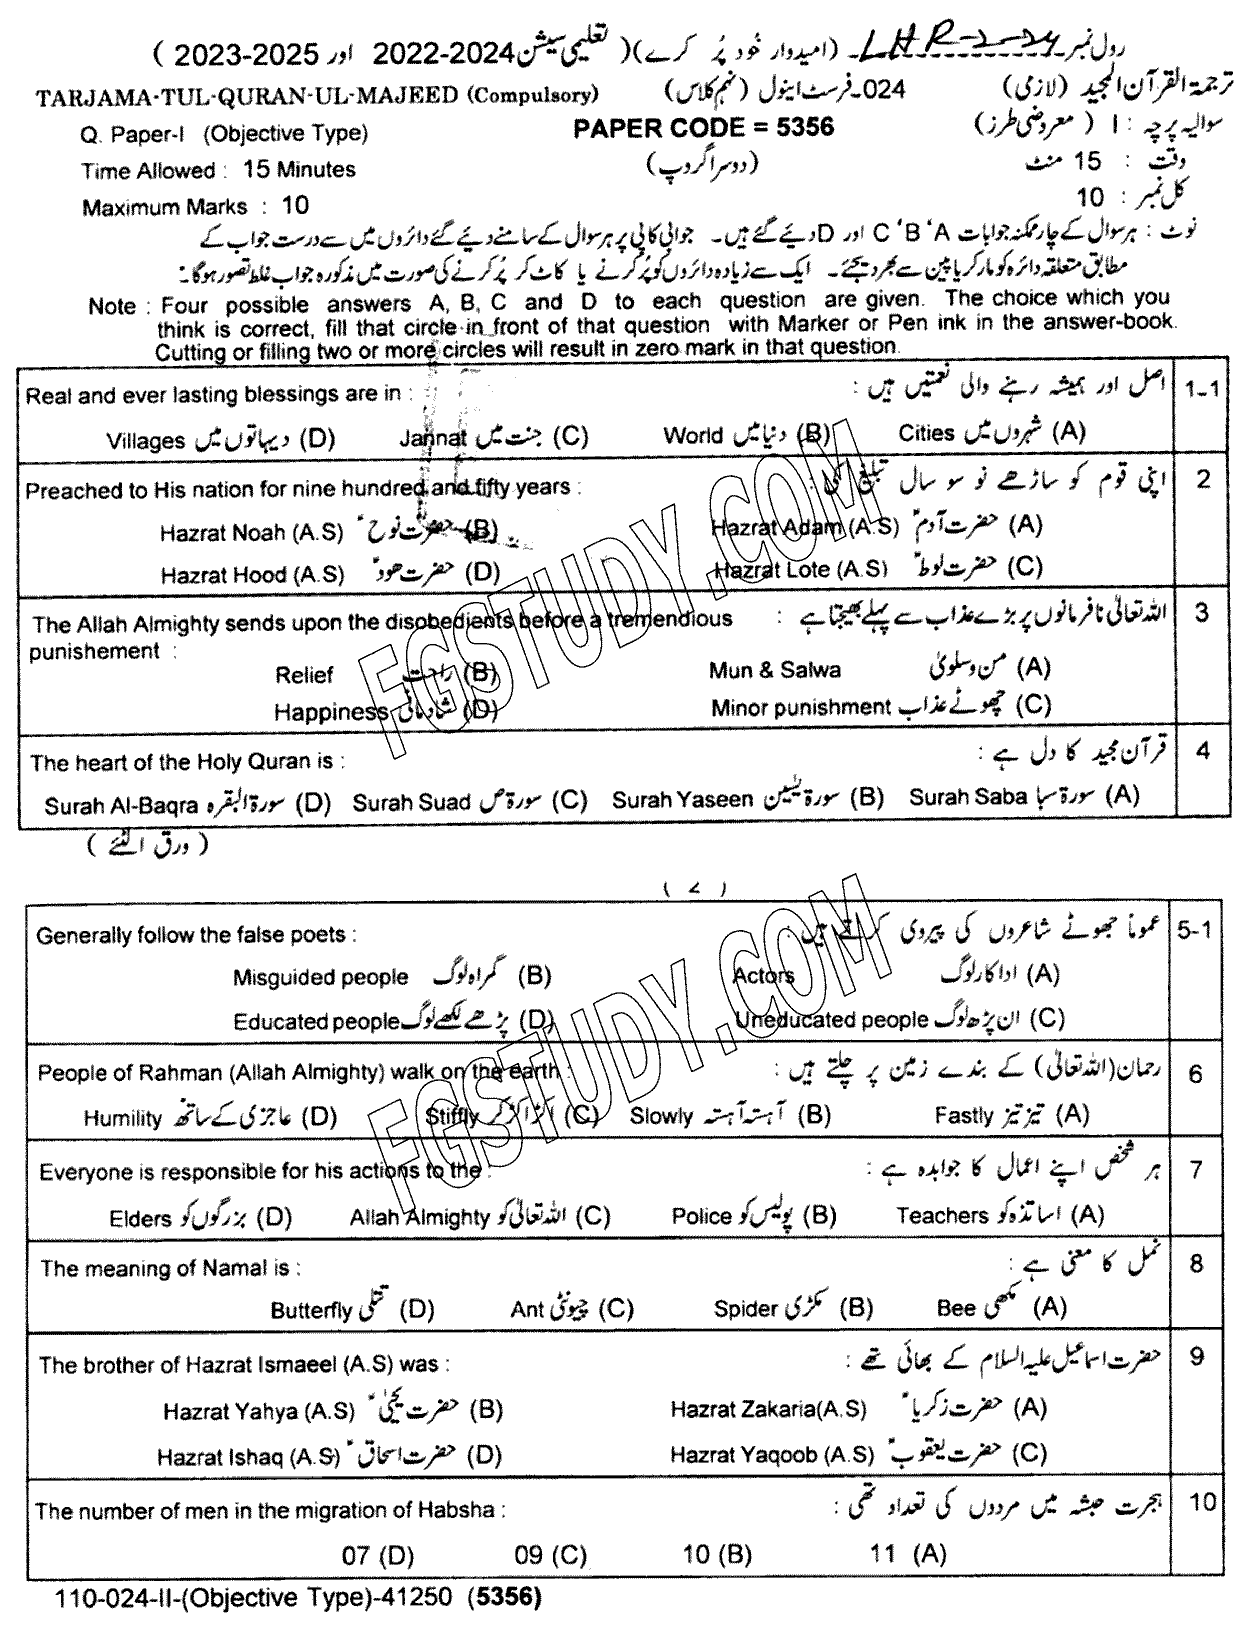 رول نمبر LHR-2-24 (امیدوار خود پُر کرے) (تعلیمی سیشن 2024-2022 اور 2025-2023)
ترجمۃ القرآن المجید (لازمی) 024-فرسٹ اینول (نہم کلاس) TARJAMA-TUL-QURAN-UL-MAJEED (Compulsory)
سوالیہ پرچہ : I (معروضی طرز) PAPER CODE = 5356 Q. Paper-I (Objective Type)
وقت : 15 منٹ (دوسرا گروپ) Time Allowed : 15 Minutes
کل نمبر : 10 Maximum Marks : 10
نوٹ : ہر سوال کے چار ممکنہ جوابات A، B، C اور D دیئے گئے ہیں۔ جوابی کاپی پر ہر سوال کے سامنے دیئے گئے دائروں میں سے درست جواب کے
مطابق متعلقہ دائرہ کو مارکر یا پین سے بھر دیجئے۔ ایک سے زیادہ دائروں کو پُر کرنے یا کاٹ کر پُر کرنے کی صورت میں مذکورہ جواب غلط تصور ہوگا۔
Note : Four possible answers A, B, C and D to each question are given. The choice which you
think is correct, fill that circle in front of that question with Marker or Pen ink in the answer-book.
Cutting or filling two or more circles will result in zero mark in that question.
1-1 اصل اور ہمیشہ رہنے والی نعمتیں ہیں : Real and ever lasting blessings are in :
(A) شہروں میں Cities (B) دنیا میں World (C) جنت میں Jannat (D) دیہاتوں میں Villages
2 اپنی قوم کو ساڑھے نو سو سال تبلیغ کی : Preached to His nation for nine hundred and fifty years :
(A) حضرت آدمؑ Hazrat Adam (A.S) (B) حضرت نوحؑ Hazrat Noah (A.S)
(C) حضرت لوطؑ Hazrat Lote (A.S) (D) حضرت ھودؑ Hazrat Hood (A.S)
3 اللہ تعالیٰ نافرمانوں پر بڑے عذاب سے پہلے بھیجتا ہے : The Allah Almighty sends upon the disobedients before a tremendious
punishement :
(A) من و سلویٰ Mun & Salwa (B) راحت Relief
(C) چھوٹے عذاب Minor punishment (D) شادمانی Happiness
4 قرآن مجید کا دل ہے : The heart of the Holy Quran is :
(A) سورۃ سبا Surah Saba (B) سورۃ یٰسین Surah Yaseen (C) سورۃ ص Surah Suad (D) سورۃ البقرہ Surah Al-Baqra
(ورق الٹئے)
( 2 )
5-1 عموماً جھوٹے شاعروں کی پیروی کرتے ہیں : Generally follow the false poets :
(A) اداکار لوگ Actors (B) گمراہ لوگ Misguided people
(C) ان پڑھ لوگ Uneducated people (D) پڑھے لکھے لوگ Educated people
6 رحمان (اللہ تعالیٰ) کے بندے زمین پر چلتے ہیں : People of Rahman (Allah Almighty) walk on the earth :
(A) تیز تیز Fastly (B) آہستہ آہستہ Slowly (C) اکڑ اکڑ کر Stiffly (D) عاجزی کے ساتھ Humility
7 ہر شخص اپنے اعمال کا جوابدہ ہے : Everyone is responsible for his actions to the :
(A) اساتذہ کو Teachers (B) پولیس کو Police (C) اللہ تعالیٰ کو Allah Almighty (D) بزرگوں کو Elders
8 نمل کا معنی ہے : The meaning of Namal is :
(A) مکھی Bee (B) مکڑی Spider (C) چیونٹی Ant (D) تتلی Butterfly
9 حضرت اسماعیل علیہ السلام کے بھائی تھے : The brother of Hazrat Ismaeel (A.S) was :
(A) حضرت زکریاؑ Hazrat Zakaria(A.S) (B) حضرت یحییٰؑ Hazrat Yahya (A.S)
(C) حضرت یعقوبؑ Hazrat Yaqoob (A.S) (D) حضرت اسحاقؑ Hazrat Ishaq (A.S)
10 ہجرت حبشہ میں مردوں کی تعداد تھی : The number of men in the migration of Habsha :
(A) 11 (B) 10 (C) 09 (D) 07
110-024-II-(Objective Type)-41250 (5356)
FGSTUDY.COM
FGSTUDY.COM